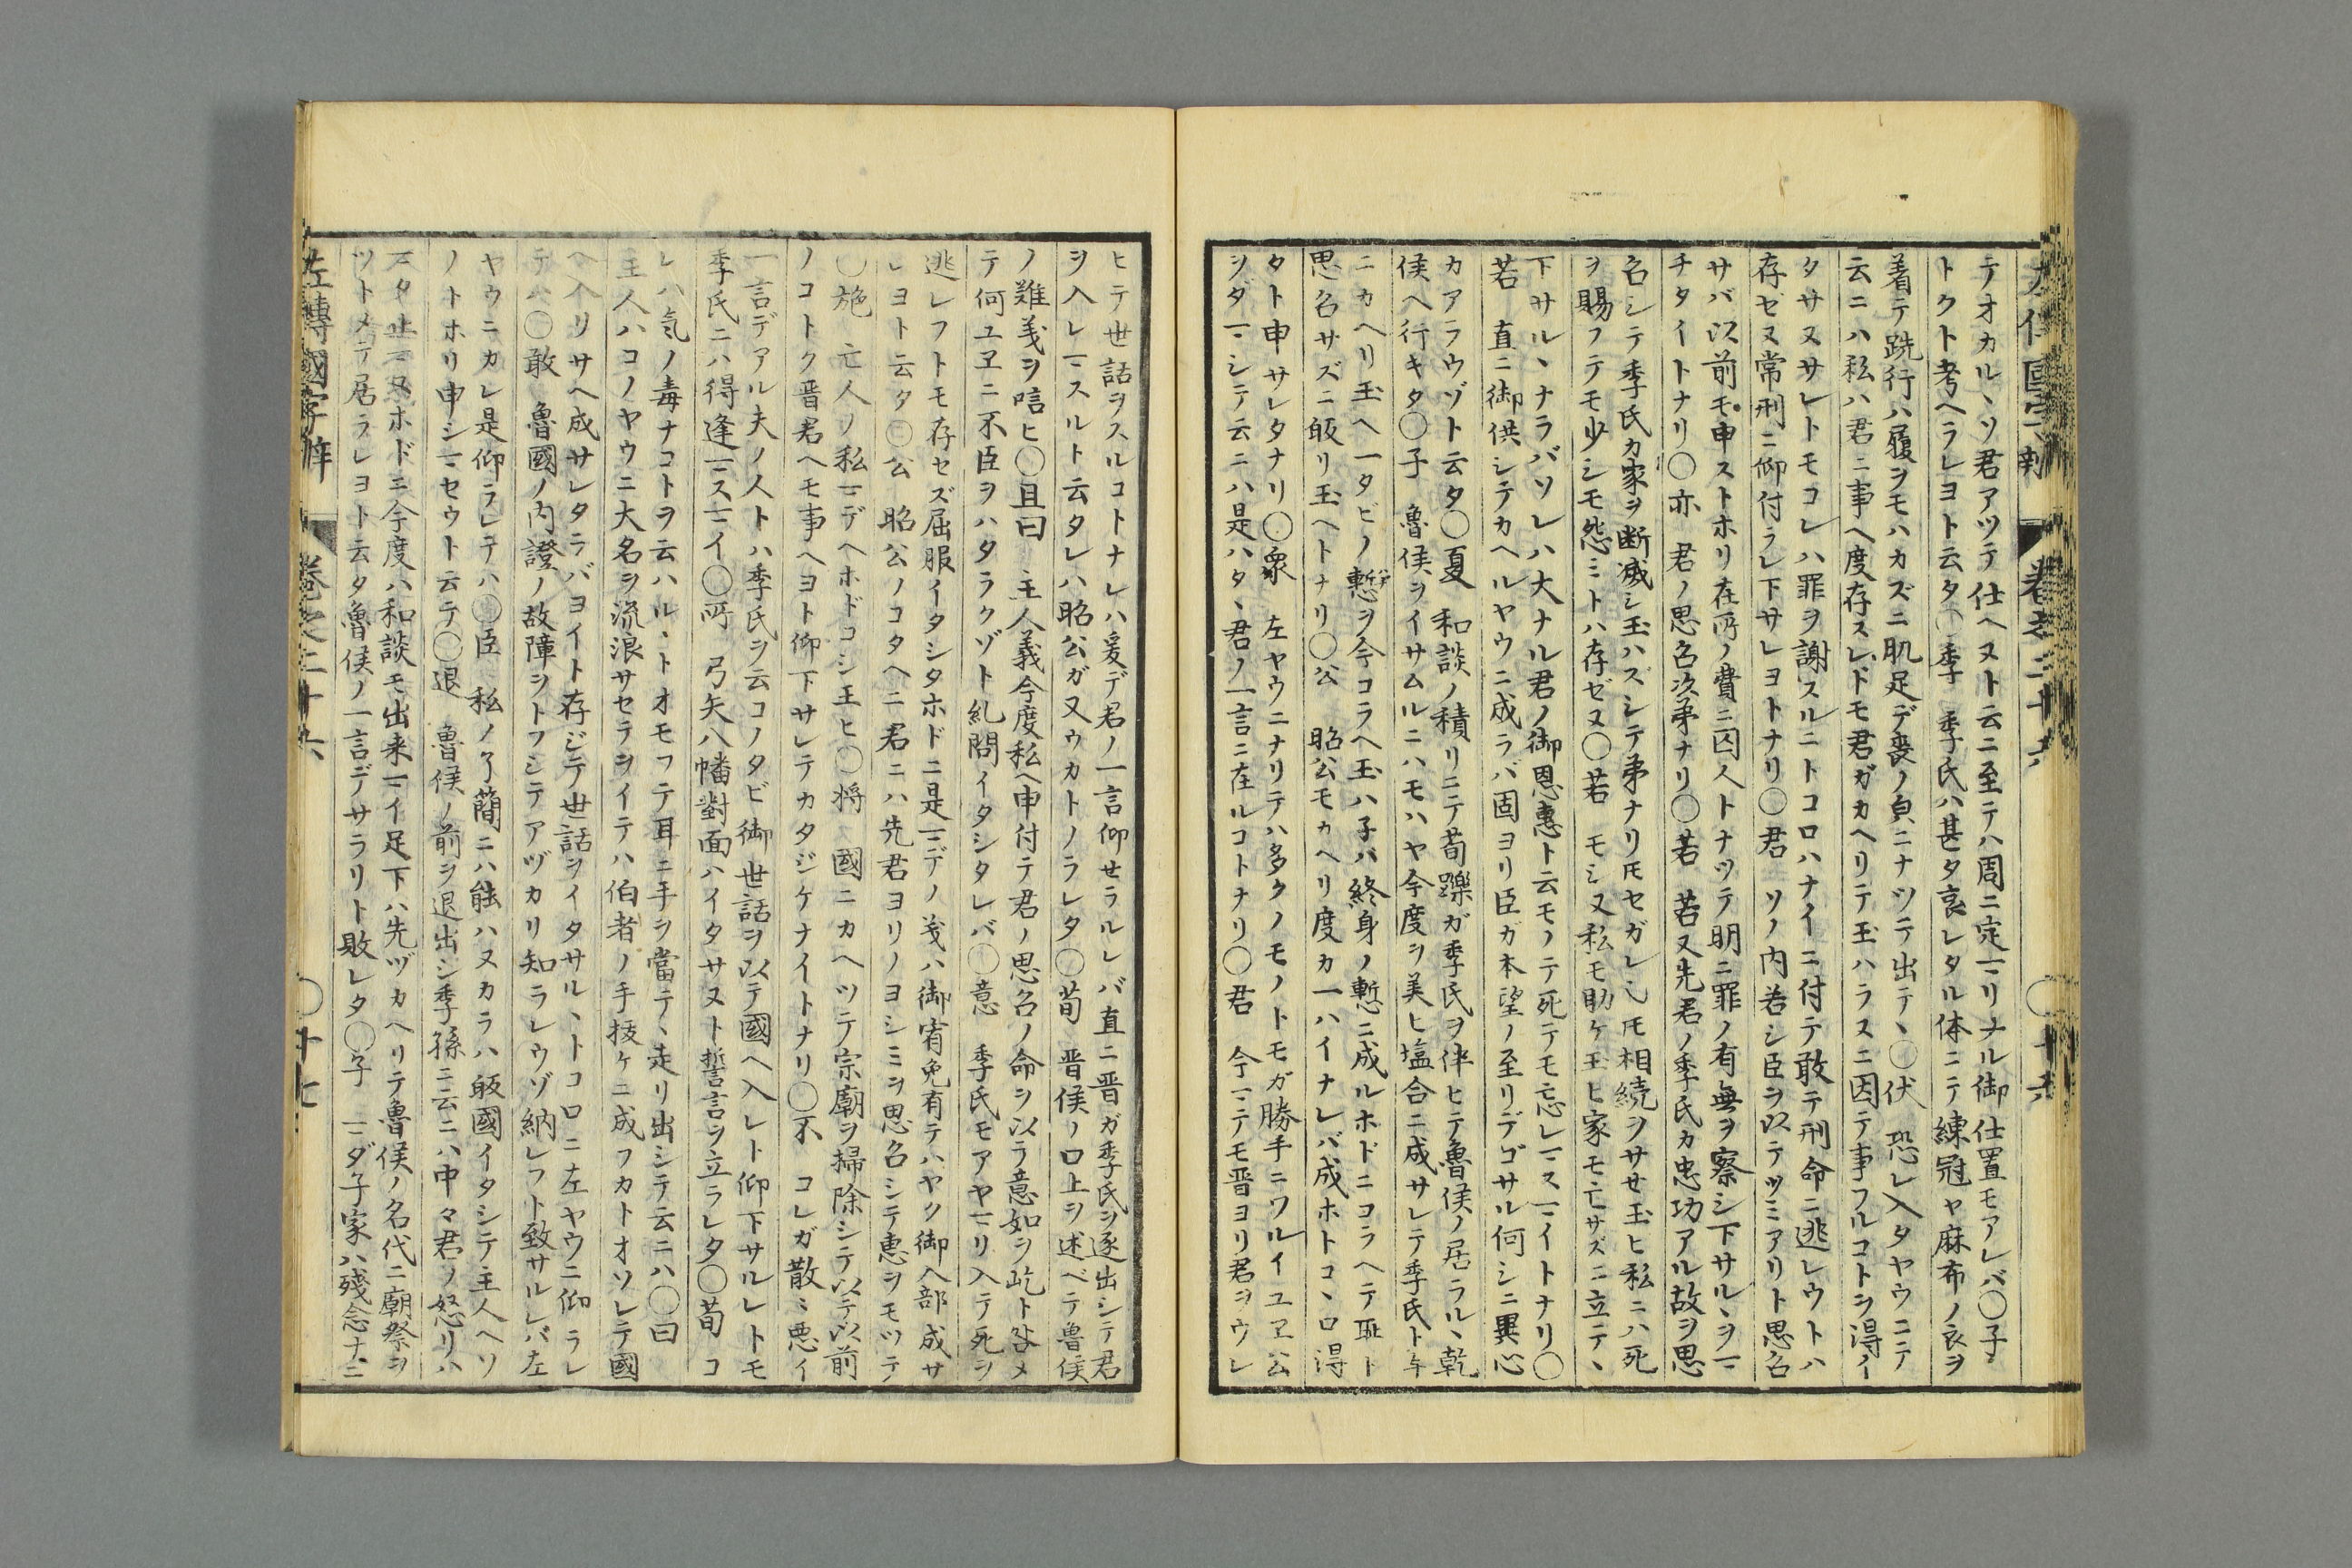 テオカルヽソ君アツテ仕ヘヌト云ニ至テハ周ニ定マリナル御仕置モアレバ〇子
トクト考ヘラレヨト云タ〇季 季氏ハ甚タ哀レタル体ニテ練冠ヤ麻布ノ衣ヲ
着テ跣行ハ履ヲモハカズニ肌足デ喪ノ負ニナツテ出テヽ〇伏 恐レ入タヤウニテ
云ニハ私ハ君ニ事ヘ度存スレドモ君ガカヘリテ玉ハラスニ因テ事フルコトヲ得
タサヌサレトモコレハ罪ヲ謝スルニトコロハナイニ付テ敢テ刑命ニ逃レウトハ
存ゼヌ常刑ニ仰付ラレ下サレヨトナリ〇君 ソノ内若シ臣ヲ以テツミアリト思召
サバ以前モ申ストホリ在所ノ費ニ囚人トナツテ明ニ罪ノ有無ヲ察シ下サルヽヲマ
チタイトナリ〇亦 君ノ思召次第ナリ〇若 若又先君ノ季氏カ忠功アル故ヲ思
召シテ季氏カ家ヲ断滅シ玉ハズシテ弟ナリ𪜈セガレ𪜈相続ヲサセ玉ヒ私ニハ死
ヲ賜フテモ少シモ怨ミトハ存ゼヌ〇若 モシ又私モ助ケ玉ヒ家モ亡サズニ立テヽ
下サルヽナラバソレハ大ナル君ノ御恩惠ト云モノテ死テモ忘レマスマイトナリ〇
若 直ニ御供シテカヘルヤウニ成ラバ固ヨリ臣ガ本望ノ至リデゴサル何シニ異心
カアラウゾト云タ〇夏 和談ノ積リニテ荀躒ガ季氏ヲ伴ヒテ魯侯ノ居ラルヽ乾
侯ヘ行キタ〇子 魯侯ヲイサムルニハモハヤ今度ヲ美ヒ塩合ニ成サレテ季氏ト与
ニカヘリ玉ヘ一タビノ慙ヲ今コラヘ玉ハ子バ終身ノ慙ニ成ルホドニコラヘテ耻ト
思召サズニ皈リ玉ヘトナリ〇公 昭公モカヘリ度カ一ハイナレバ成ホトコヽロ得
タト申サレタナリ〇衆 左ヤウニナリテハ多クノモノトモガ勝手ニワルイユヱ公
ヲダマシテ云ニハ是ハタヽ君ノ一言ニ在ルコトナリ〇君 今マテモ晋ヨリ君ヲウレ
ヒテ世話ヲスルコトナレハ爰デ君ノ一言仰せラルレバ直ニ晋ガ季氏ヲ逐出シテ君
ヲ入レマスルト云タレハ昭公ガ又ウカトノラレタ〇荀 晋侯ノ口上ヲ述ベテ魯侯
ノ難義ヲ唁ヒ〇且曰 主人義今度私ヘ申付テ君ノ思召ノ命ヲ以ラ意如ヲ屹ト咎メ
テ何ユヱニ不臣ヲハタラクゾト糺問イタシタレバ〇意 季氏モアヤマリ入テ死ヲ
逃レフトモ存セズ屈服イタシタホドニ是マデノ義ハ御宥免有テハヤク御入部成サ
レヨト云タ〇公 昭公ノコタヘニ君ニハ先君ヨリノヨシミヲ思召シテ惠ヲモツテ
〇施 亡人ノ私マデヘホドコシ玉ヒ〇将 國ニカヘツテ宗廟ヲ掃除シテ以テ以前
ノコトク晋君ヘモ事ヘヨト仰下サレテカタジケナイトナリ〇不 コレガ散ミ悪イ
一言デアル夫ノ人トハ季氏ヲ云コノタビ御世話ヲ以テ國ヘ入レト仰下サルレトモ
季氏ニハ得逢マスマイ〇所 弓矢八幡對面ハイタサヌト誓言ヲ立ラレタ〇荀 コ
レハ気ノ毒ナコトヲ云ハルヽトオモフテ耳ニ手ヲ當テヽ走リ出シテ云ニハ〇曰
主人ハコノヤウニ大名ヲ流浪サセテヲイテハ伯者ノ手抜ケニ成フカトオソレテ國
ヘ入リサヘ成サレタラバヨイト存ジテ世話ヲイタサルヽトコロニ左ヤウニ仰ラレ
テハ〇敢 魯國ノ内證ノ故障ヲトフシテアヅカリ知ラレウゾ納レフト致サルレバ左
ヤウニカレ是仰ラレテハ〇臣 私ノ了簡ニハ能ハヌカラハ皈國イタシテ主人ヘソ
ノトホリ申シマセウト云テ〇退 魯侯ノ前ヲ退出シ季孫ニ云ニハ中々君ノ怒リハ
マタ止マヌホドニ今度ハ和談モ出来マイ足下ハ先ヅカヘリテ魯侯ノ名代ニ廟祭ヲ
ツトメテ居ラレヨト云タ魯侯ノ一言デサラリト敗レタ〇子 マダ子家ハ殘念ナニ
左傳國字辯 卷之二十六 〇十七